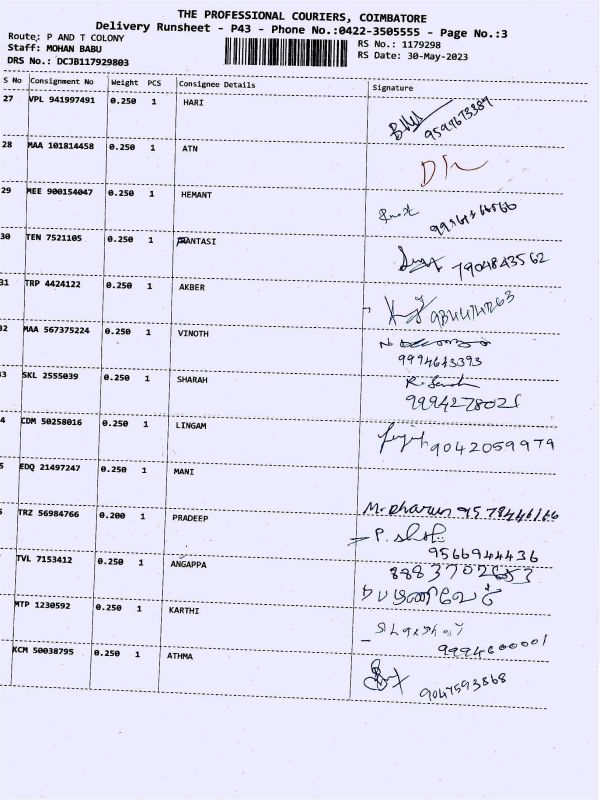 THE PROFESSIONAL COURIERS, COIMBATORE
Delivery Runsheet - P43 - Phone No.:0422-3505555 - Page No.:3
Route: P AND T COLONY
RS No.: 1179298
Staff: MOHAN BABU
RS Date: 30-May-2023
DRS No.: DCJB117929803
S No Consignment No Weight PCS Consignee Details Signature
27 VPL 941997491 0.250 1 HARI
28 MAA 101814458 0.250 1 ATN
29 MEE 900154047 0.250 1 HEMANT
30 TEN 7521105 0.250 1 ANTASI 7904843562
31 TRP 4424122 0.250 1 AKBER
32 MAA 567375224 0.250 1 VINOTH
9994643393
33 SKL 2555039 0.250 1 SHARAH
9994278021
4 CDM 50258016 0.250 1 LINGAM 9042059979
5 EDQ 21497247 0.250 1 MANI
M. Dharun
TRZ 56984766 0.200 1 PRADEEP
9566944436
TVL 7153412 0.250 1 ANGAPPA
MTP 1230592 0.250 1 KARTHI
9994600001
KCM 50038795 0.250 1 ATHMA 9047593868